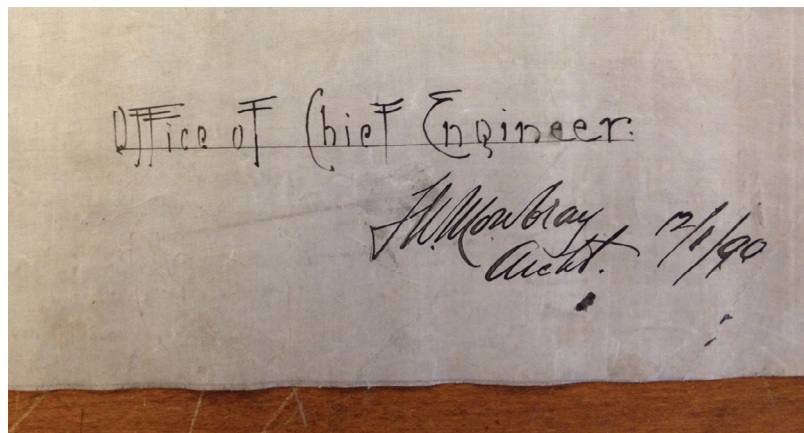 Office of Chief Engineer.
F.W. Mowbray
Archt. 12/1/90